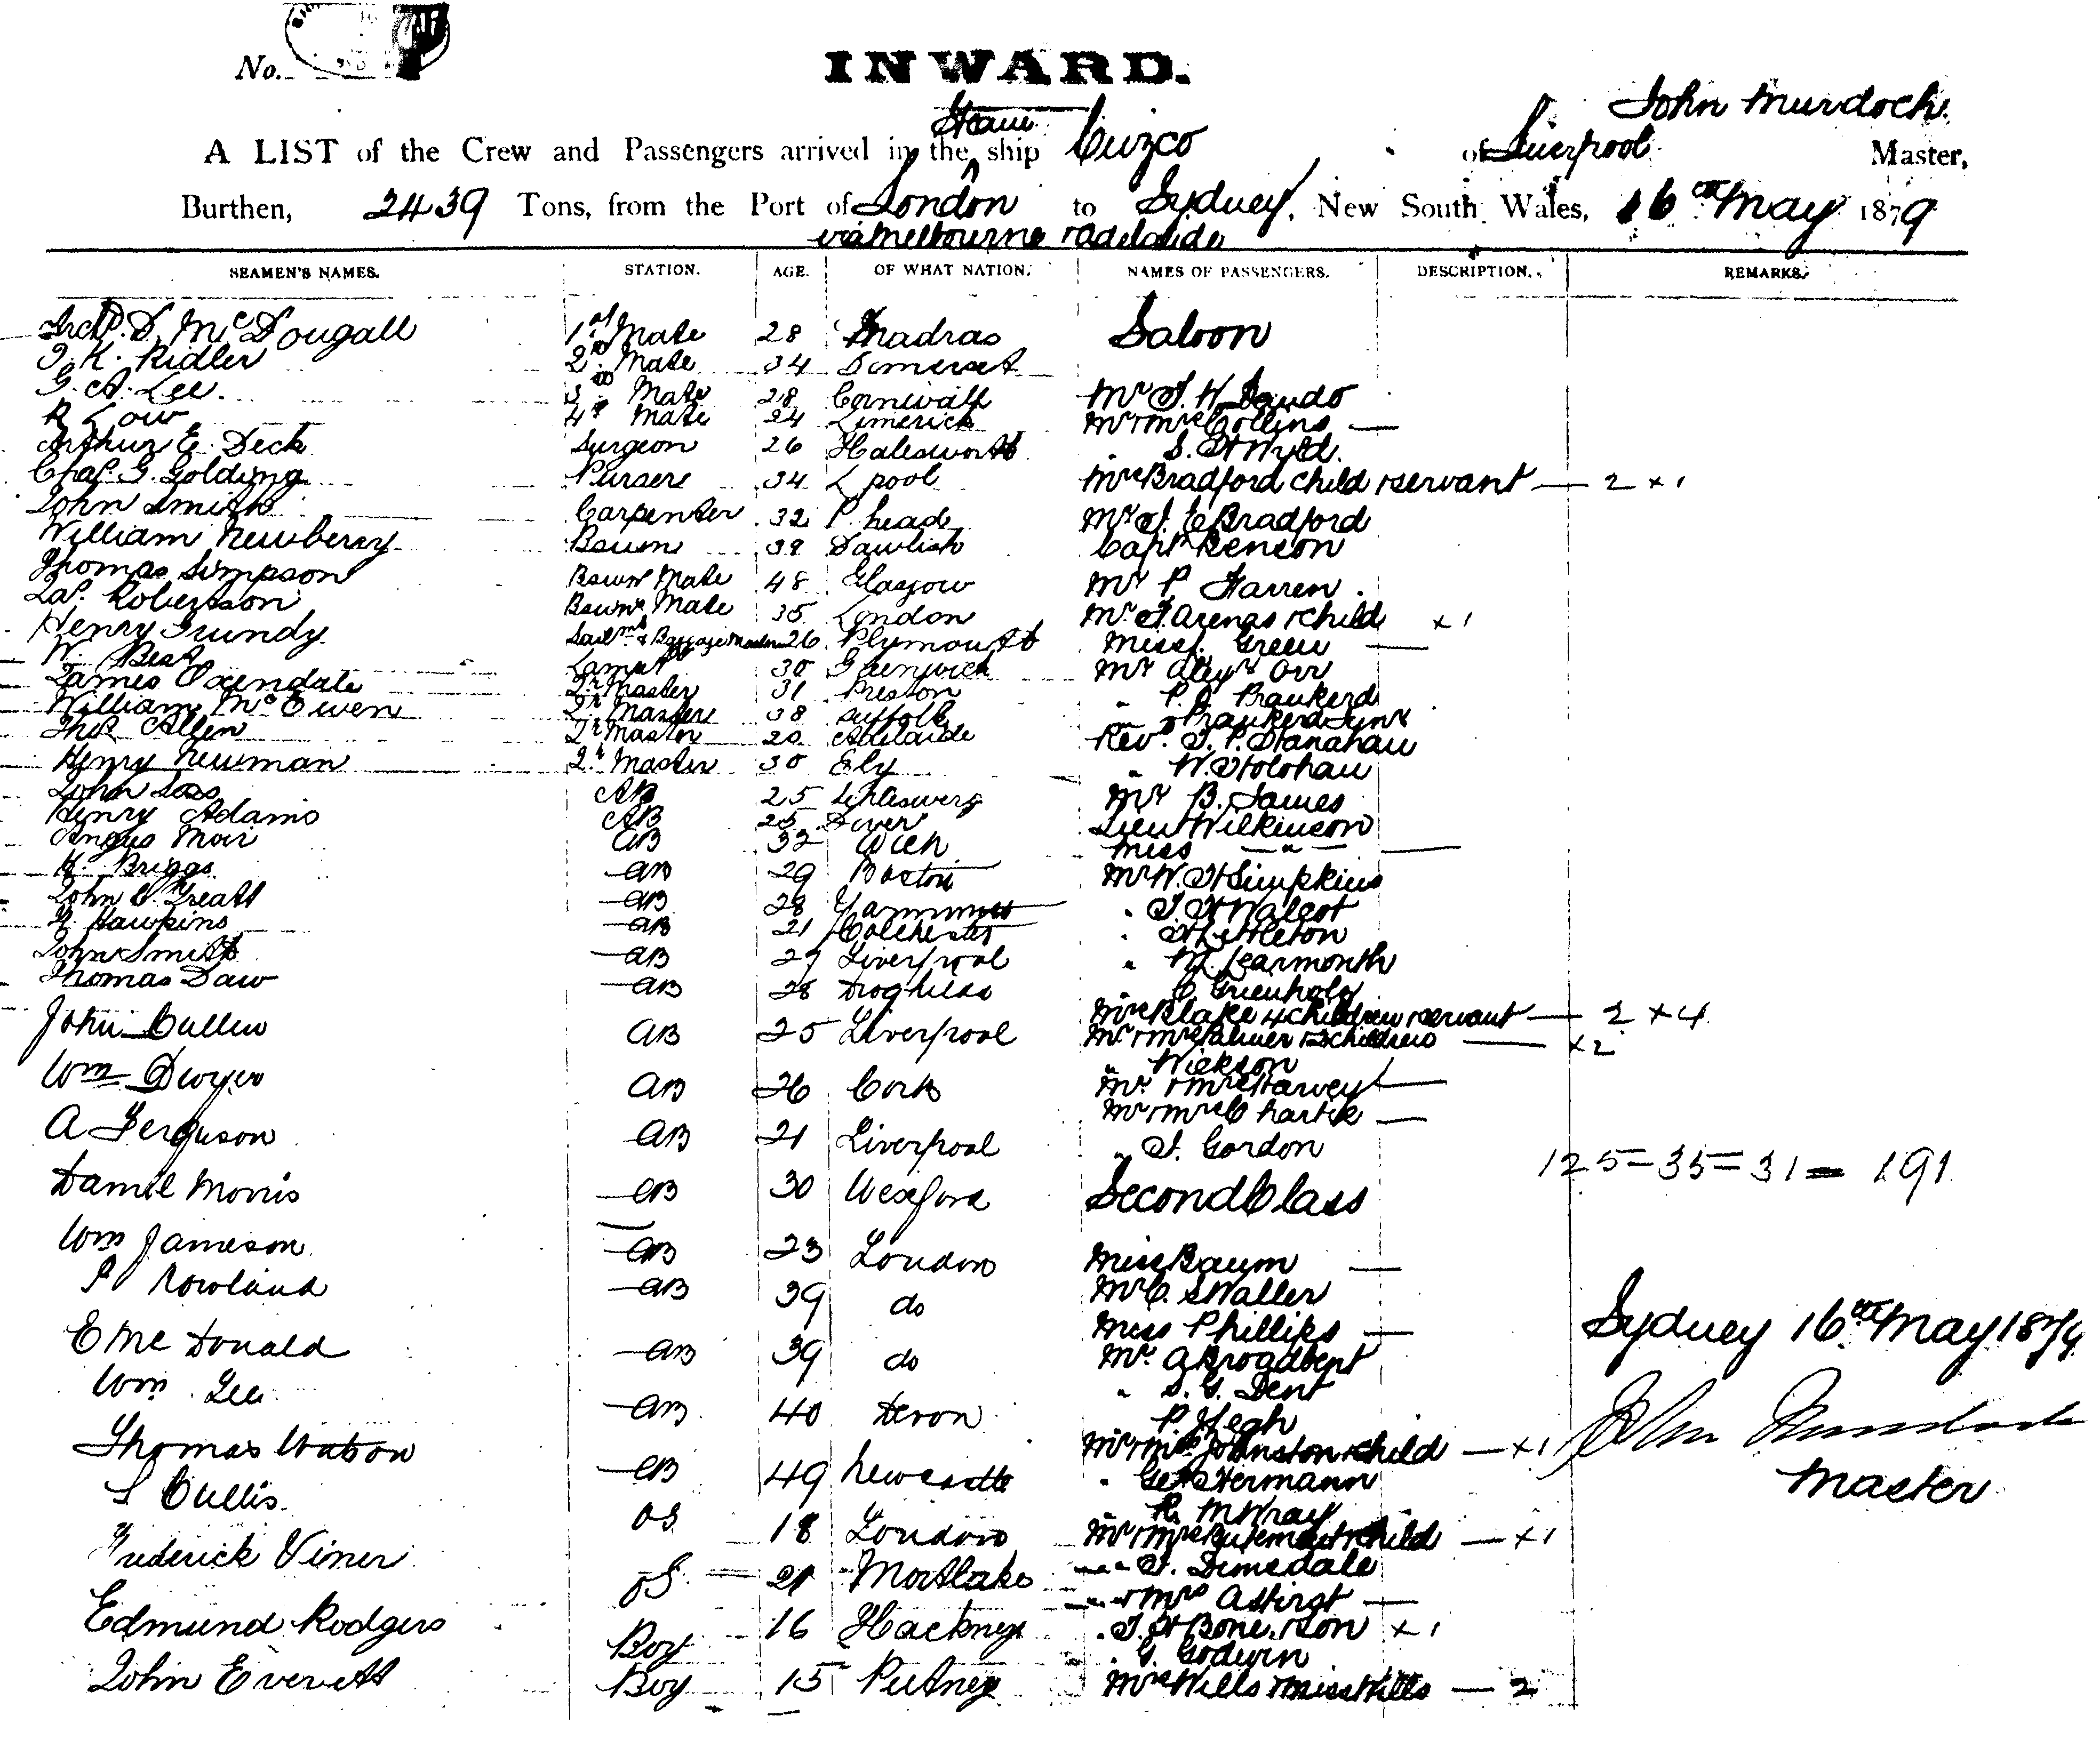 No.
INWARD.
John Murdoch
Steam
A LIST of the Crew and Passengers arrived in the ship Cuzco of Liverpool Master,
Burthen, 2439 Tons, from the Port of London to Sydney, New South Wales, 16th May 1879
via Melbourne & Adelaide
SEAMEN'S NAMES. STATION. AGE. OF WHAT NATION. NAMES OF PASSENGERS. DESCRIPTION. REMARKS.
Archd. D. McDougall 1st Mate 28 Madras Saloon
J. K. Ridler 2nd Mate 34 Somerset
G. A. Lee 3rd Mate 28 Cornwall Mr J. H.
R Low 4th Mate 24 Limerick Mr & Mrs Collins —
Arthur E. Deck Surgeon 26 Halesworth " S. H Wyld.
Chas. G. Golding Purser 34 L'pool Mrs Bradford child & servant — 2 x 1
John Smith Carpenter 32 P. head Mr J. E Bradford
William Newberry Bosun 39 Dawlish Capt Benson
Thomas Simpson Bosuns Mate 48 Glasgow Mr P. Farren
Jas. Robertson Bosuns Mate 35 London Mr F. Arenas & child x 1
Henry Grundy Sailmr & Baggage Master 26 Plymouth Miss Green —
W. Best Lampr 30 Greenwich Mr Alexr Orr
James Oxendale Qr Master 31 Preston " P. J. Prankerd
William McEwen Qr Master 38 Suffolk " Prankerd Junr
Thos. Allen Qr Master 20 Adelaide Revd. J. P.
Henry Newman Qr Master 30 Ely " W. Holohan
John AB 25 Schleswerg Mr B. James
Henry Adams AB 25 Dover Lieu Wilkinson
Angus Moir AB 32 Wick Miss — " — —
H. Briggs AB 29 Boston Mr W. H Simpkins
John Greatt AB 28 " J H Walcot
H. Hawkins AB 21 Colchester " Littleton
John Smith AB 27 Liverpool " M. Learmonth
Thomas Daw AB 28 Drogheda C
Mrs Blake 4 children & servant — 2 x 4
John Cullen AB 25 Liverpool Mr & Mrs Palmer & 2 children — x 2
" Wickson
Wm Dwyer AB 26 Cork Mr & Mrs Harvey —
Mr & Mrs —
A Ferguson AB 21 Liverpool " J. Gordon
125 = 35 = 31 = 191
Daniel Morris AB 30 Wexford Second Class
Wm Jameson AB 23 London Miss Baum —
P Rowland AB 39 do Mr C. S Waller
Miss Phillips —
Sydney 16th May 1879
E Mc Donald AB 39 do Mr. A Broadbent
" S. G. Dent
Wm Lee AB 40 Devon
Mr & Mrs Johnston & child — x 1 John Murdoch
Thomas Watson AB 49 Newcastle " Hermann
Master
S Cullis OS 18 London " R. M Wray
Mr & Mrs & child — x 1
Frederick Viner OS 21 Mortlake " J. Dimsdale
" & Mrs —
Edmund Rodgers Boy 16 Hackney " J. H Bone & son x 1
" G. Godwin
John Everett Boy 15 Putney Mrs Wills & Miss Wills — 2